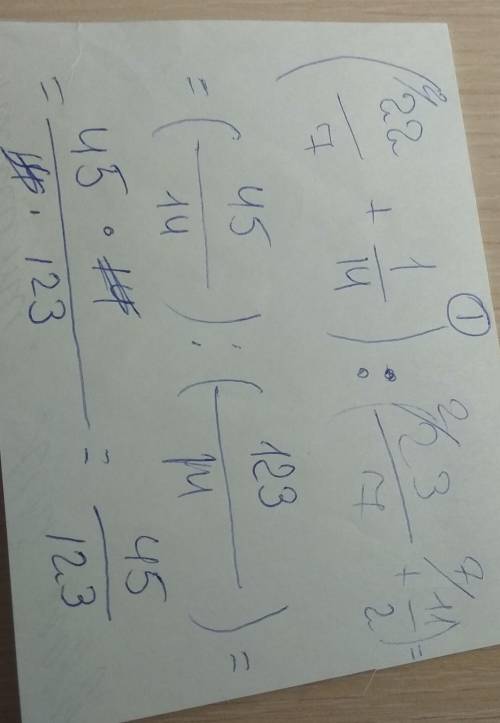 ①
(²⁄22/7 + 1/14) : (²⁄23/7 + ⁷⁄11/2) =
= (45/14) : (123/14) =
= 45 · 14/14 · 123 = 45/123